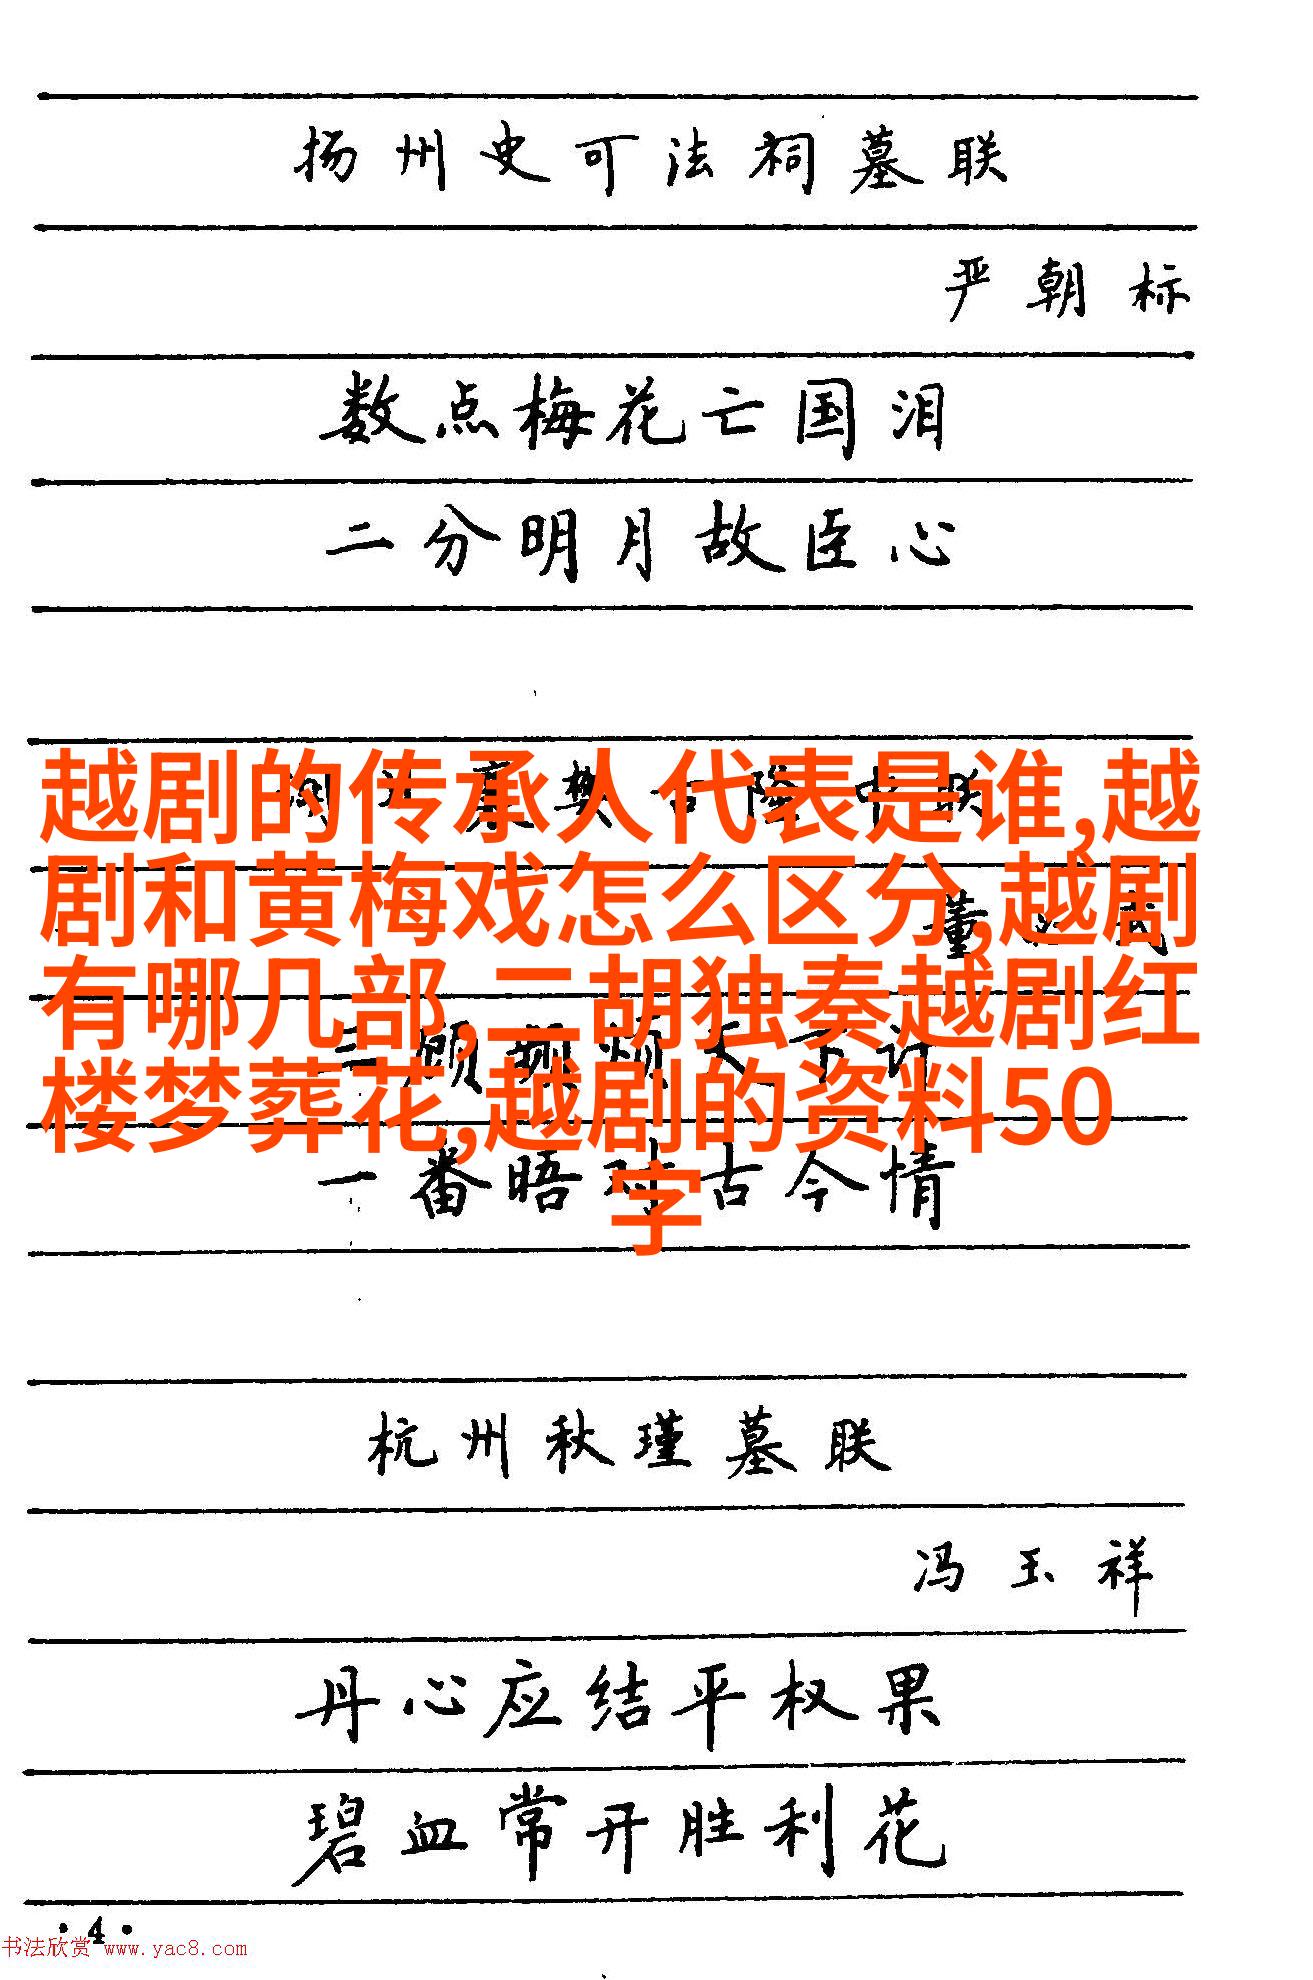 扬州史可法祠墓联
严朝标
数点梅花亡国泪
二分明月故臣心
越剧的传承人代表是谁,越
剧和黄梅戏怎么区分,越剧
有哪几部,二胡独奏越剧红
楼梦葬花,越剧的资料50
字
联
董
三顾频烦天下计
一番晤对古今情
杭州秋瑾墓联
冯玉祥
丹心应结平权果
碧血常开胜利花
·4·
书法欣赏 www.yac8.com